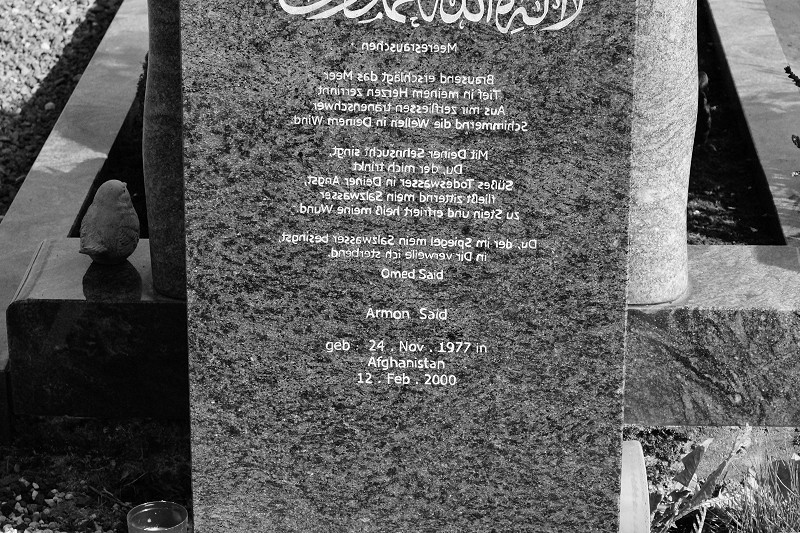 لا إله إلا الله محمد
Meeresrauschen
Brausend erschlägt das Meer
Tief in meinem Herzen zerrinnt
Aus mir zerfliessen tränenschwer
Schimmernd die Wellen in Deinem Wind.
Mit Deiner Sehnsucht singt,
Du, der mich trinkt
Süßes Todeswasser in Deiner Angst,
fließt zitternd mein Salzwasser
zu Stein und erfriert heiß meine Wund.
Du, der im Spiegel mein Salzwasser besingst,
in Dir verweile ich sterbend.
Omed Said
Armon Said
geb . 24 . Nov . 1977 in
Afghanistan
12 . Feb . 2000